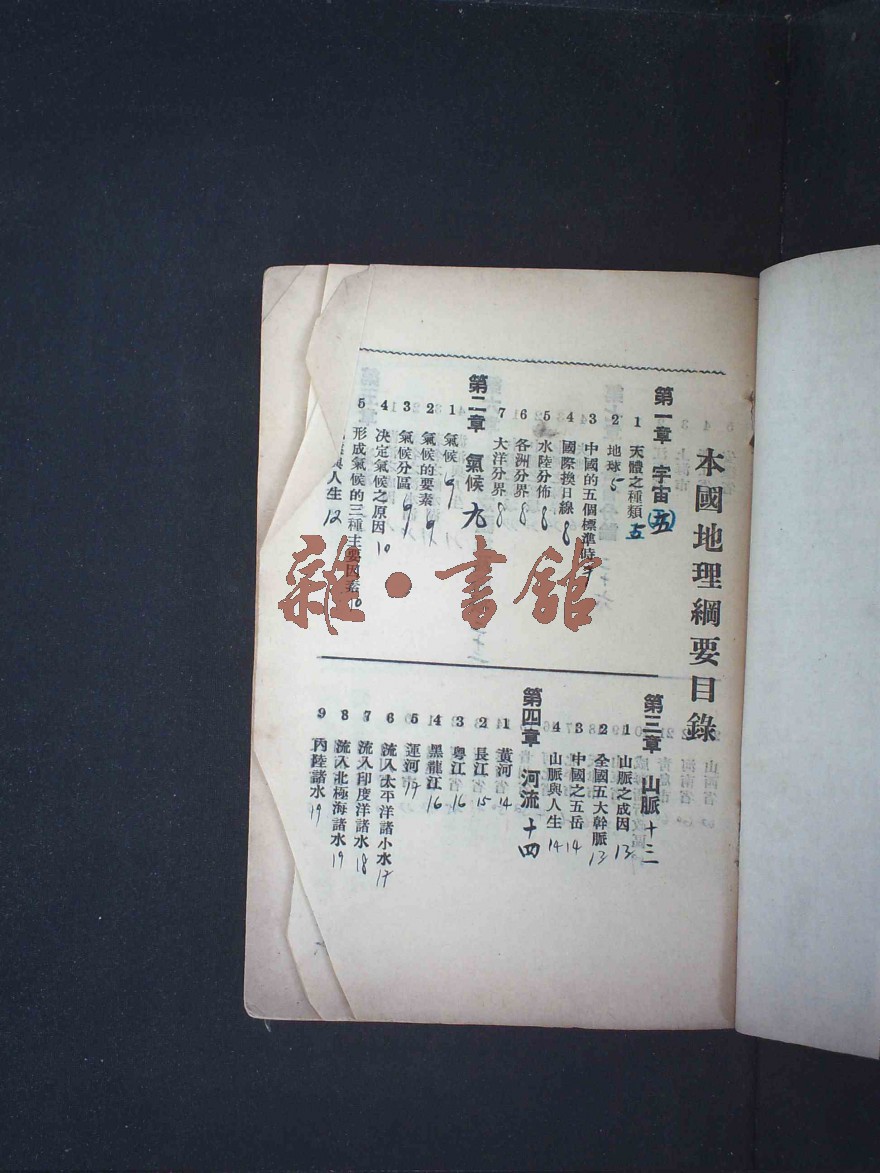 本國地理綱要目錄
第一章 宇宙 五
1 天體之種類 五
2 地球 5
3 中國的五個標準時 7
4 國際換日線 8
5 水陸分佈 8
6 各洲分界 8
7 大洋分界 8
第二章 氣候 九
1 氣候 9
2 氣候的要素 9
3 氣候分區 9
4 決定氣候之原因 10
5 形成氣候的三種主要因素 10
與人生 12
第三章 山脈 十三
1 山脈之成因 13
2 全國五大幹脈 13
3 中國之五岳 14
4 山脈與人生 14
第四章 河流 十四
1 黃河 14
2 長江 15
3 粵江 16
4 黑龍江 16
5 運河 17
6 流入太平洋諸小水 17
7 流入印度洋諸水 18
8 流入北極海諸水 19
9 內陸諸水 19
雜·書館